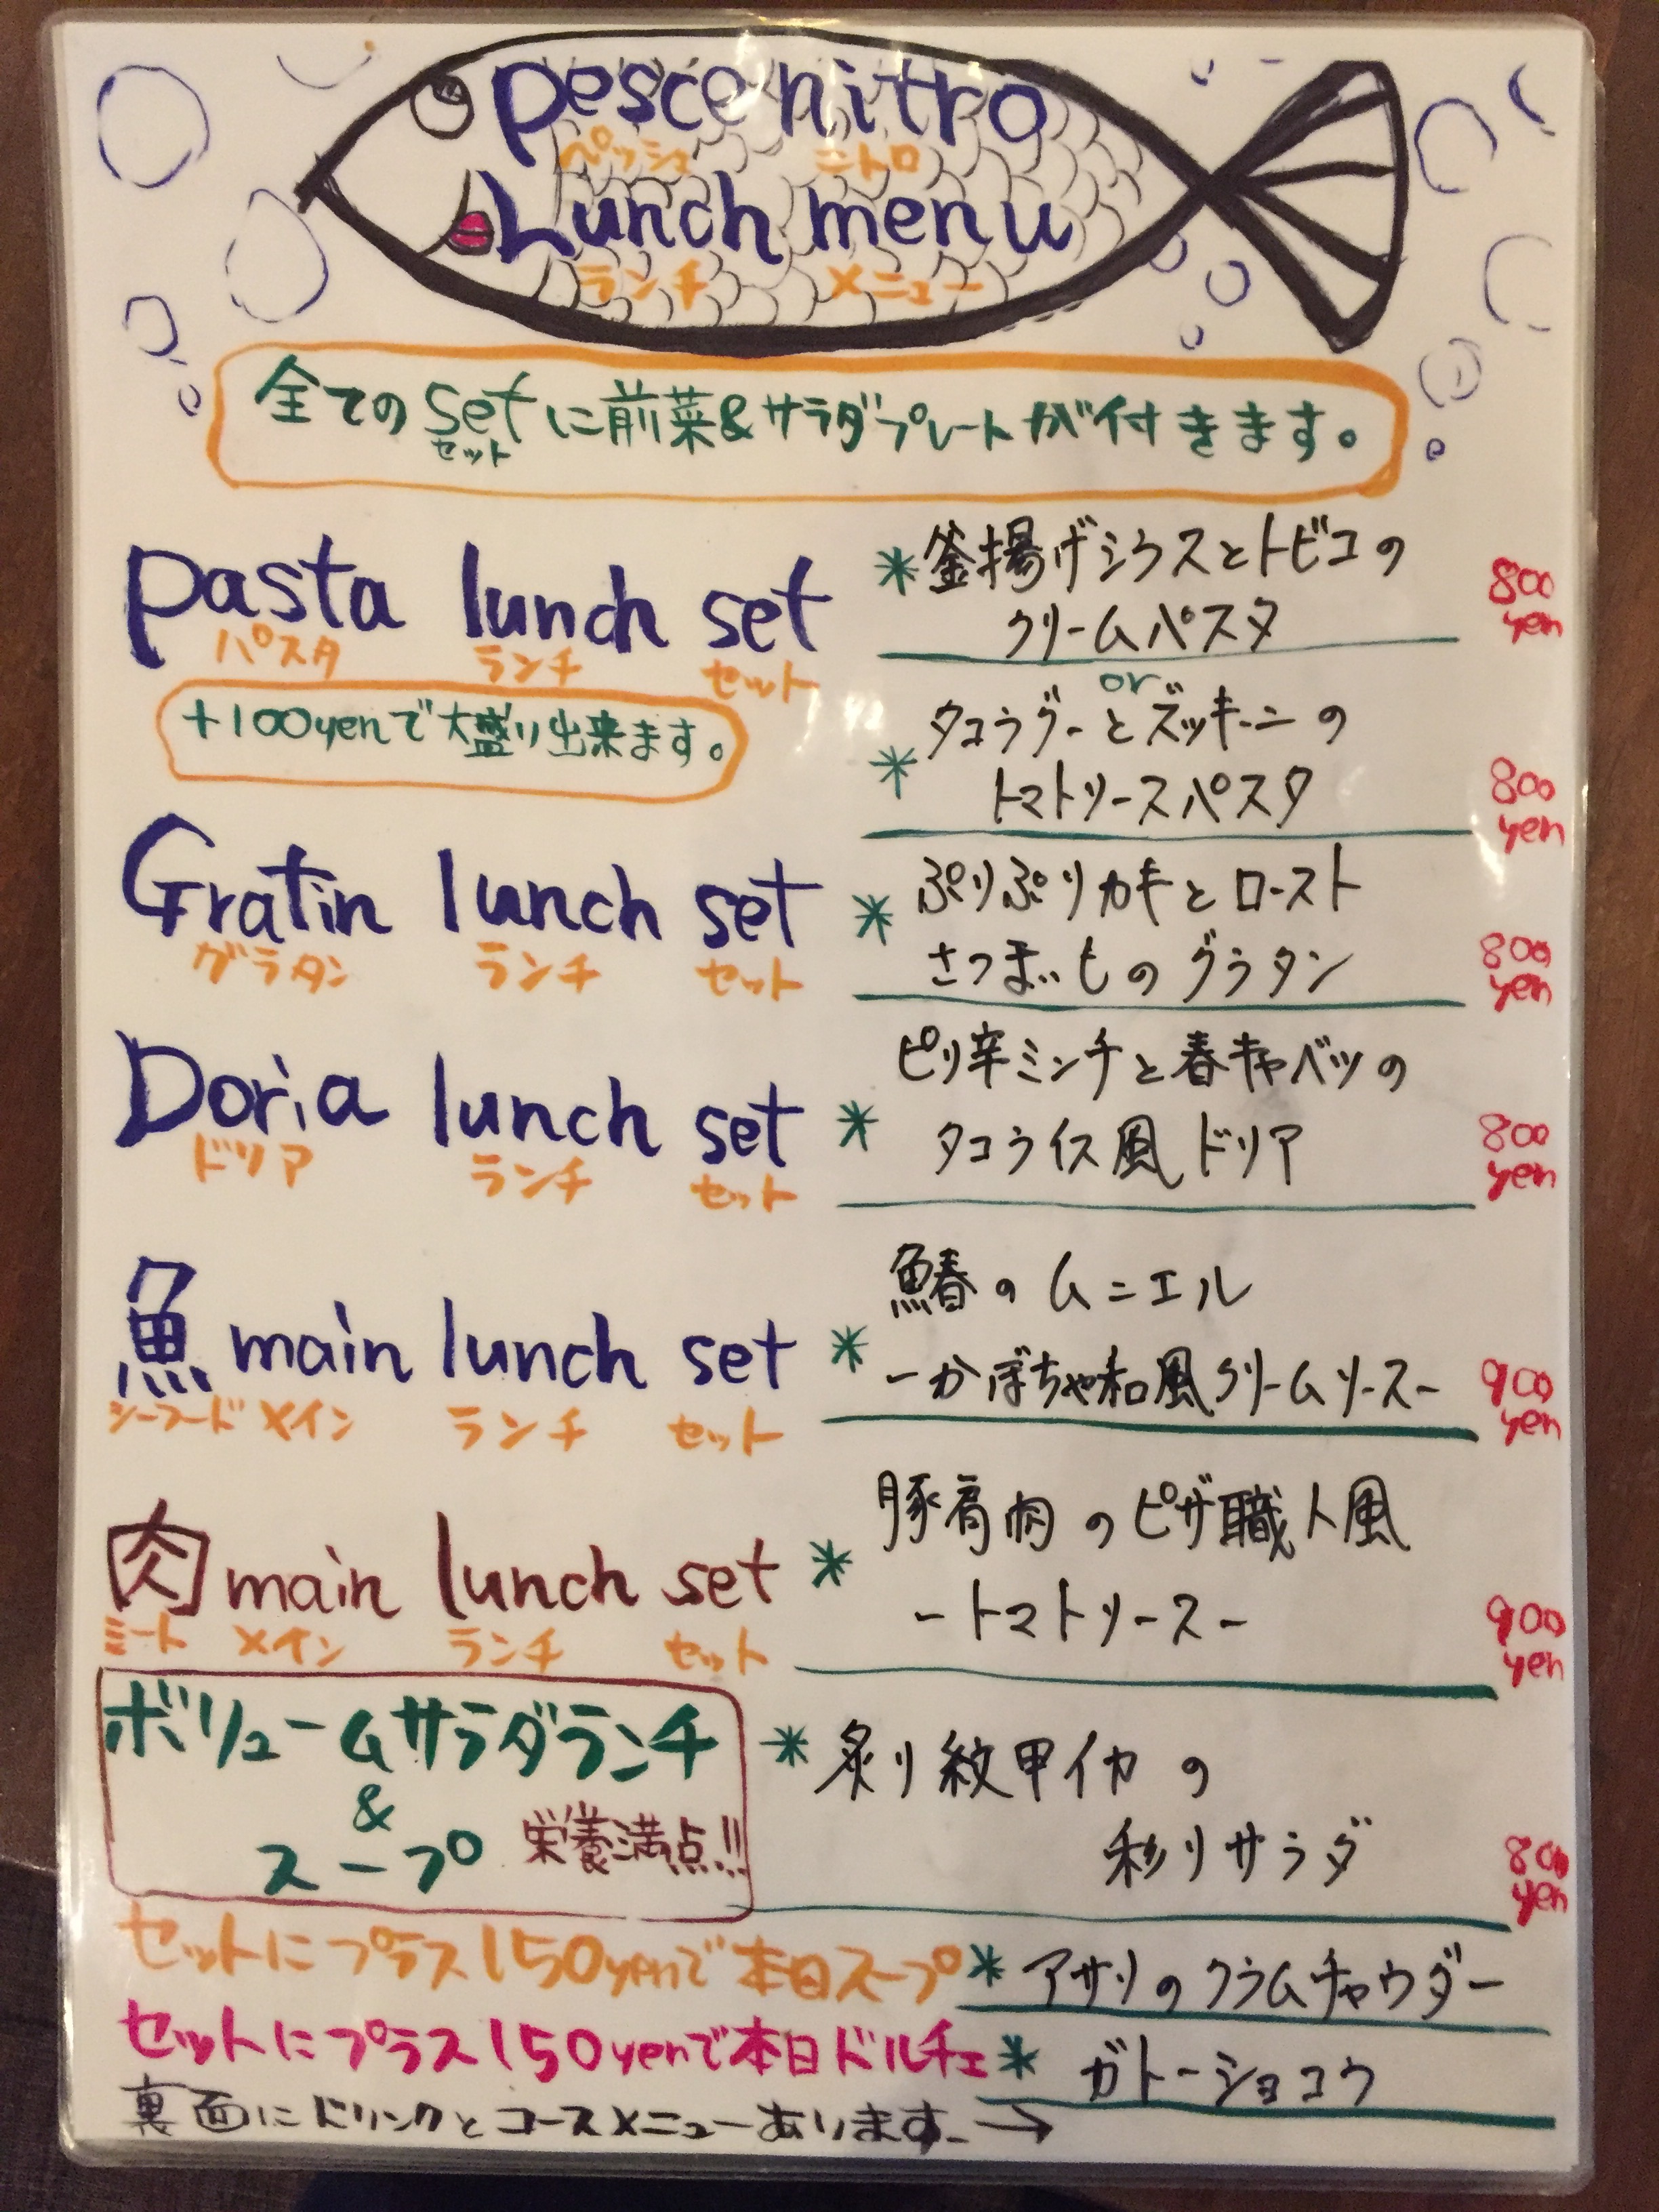 pesce nitro
ペッシェ ニトロ
Lunch menu
ランチ メニュー
全てのsetに前菜&サラダプレートが付きます。
セット
pasta lunch set
パスタ ランチ セット
+100yenで大盛り出来ます。
*釜揚げシラスとトビコの
クリームパスタ
800
yen
or
*タコラグーとズッキーニの
トマトソースパスタ
800
yen
Gratin lunch set
グラタン ランチ セット
*ぷりぷりカキとロースト
さつまいものグラタン
800
yen
Doria lunch set
ドリア ランチ セット
*ピリ辛ミンチと春キャベツの
タコライス風ドリア
800
yen
魚main lunch set
シーフード メイン ランチ セット
*鰆のムニエル
-かぼちゃ和風クリームソース-
900
yen
肉main lunch set
ミート メイン ランチ セット
*豚肩肉のピザ職人風
-トマトソース-
900
yen
ボリュームサラダランチ
&
スープ 栄養満点!!
*炙り紋甲イカの
彩りサラダ
800
yen
セットにプラス150yenで本日スープ*アサリのクラムチャウダー
セットにプラス150yenで本日ドルチェ*ガトーショコラ
裏面にドリンクとコースメニューあります。→